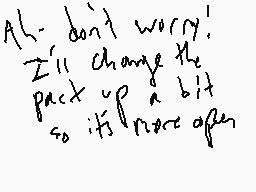 Ah- don't worry!
I'll change the
pact up a bit
so it's more open